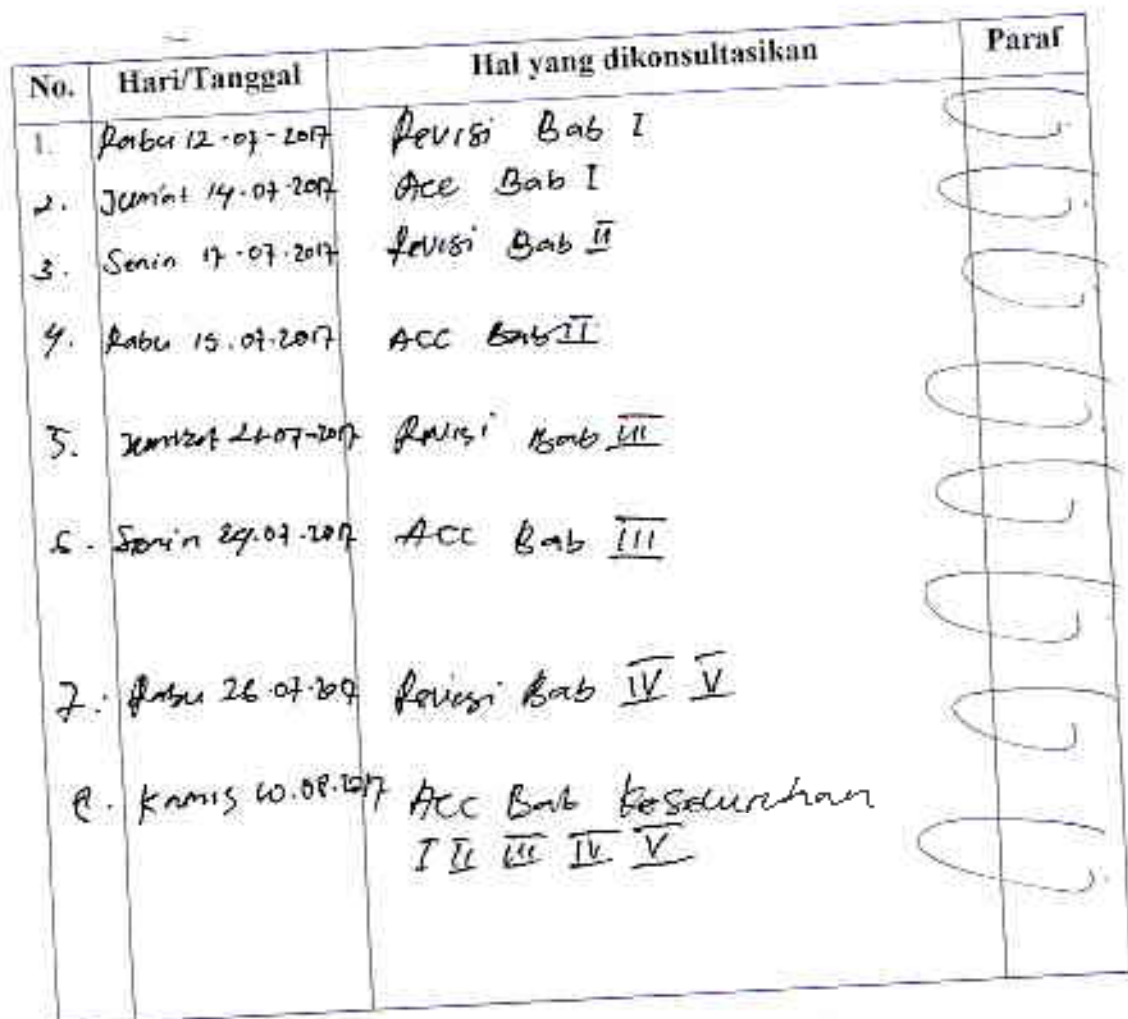 No. Hari/Tanggal Hal yang dikonsultasikan Paraf
1. Rabu 12-07-2017 Revisi Bab I
2. Jum'at 14-07-2017 Acc Bab I
3. Senin 17-07-2017 Revisi Bab II
4. Rabu 19.07.2017 ACC Bab II
5. 21-07-2017 Revisi Bab III
6. Senin 24.07.2017 ACC Bab III
7. Rabu 26.07.2017 Revisi Bab IV V
8. Kamis 10.08.2017 Acc Bab Keseluruhan
I II III IV V